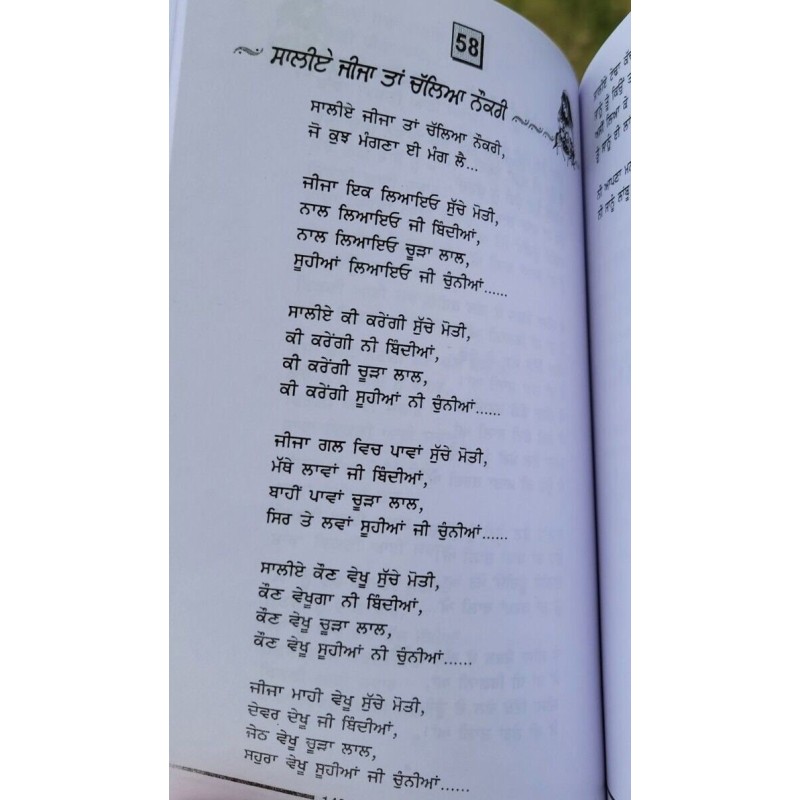 58
ਸਾਲੀਏ ਜੀਜਾ ਤਾਂ ਚੱਲਿਆ ਨੌਕਰੀ
ਸਾਲੀਏ ਜੀਜਾ ਤਾਂ ਚੱਲਿਆ ਨੌਕਰੀ,
ਜੋ ਕੁਝ ਮੰਗਣਾ ਈ ਮੰਗ ਲੈ...
ਜੀਜਾ ਇਕ ਲਿਆਇਓ ਸੁੱਚੇ ਮੋਤੀ,
ਨਾਲ ਲਿਆਇਓ ਜੀ ਬਿੰਦੀਆਂ,
ਨਾਲ ਲਿਆਇਓ ਚੂੜਾ ਲਾਲ,
ਸੂਹੀਆਂ ਲਿਆਇਓ ਜੀ ਚੁੰਨੀਆਂ......
ਸਾਲੀਏ ਕੀ ਕਰੇਂਗੀ ਸੁੱਚੇ ਮੋਤੀ,
ਕੀ ਕਰੇਂਗੀ ਨੀ ਬਿੰਦੀਆਂ,
ਕੀ ਕਰੇਂਗੀ ਚੂੜਾ ਲਾਲ,
ਕੀ ਕਰੇਂਗੀ ਸੂਹੀਆਂ ਨੀ ਚੁੰਨੀਆਂ......
ਜੀਜਾ ਗਲ ਵਿਚ ਪਾਵਾਂ ਸੁੱਚੇ ਮੋਤੀ,
ਮੱਥੇ ਲਾਵਾਂ ਜੀ ਬਿੰਦੀਆਂ,
ਬਾਹੀਂ ਪਾਵਾਂ ਚੂੜਾ ਲਾਲ,
ਸਿਰ ਤੇ ਲਵਾਂ ਸੂਹੀਆਂ ਜੀ ਚੁੰਨੀਆਂ......
ਸਾਲੀਏ ਕੌਣ ਵੇਖੂ ਸੁੱਚੇ ਮੋਤੀ,
ਕੌਣ ਵੇਖੂਗਾ ਨੀ ਬਿੰਦੀਆਂ,
ਕੌਣ ਵੇਖੂ ਚੂੜਾ ਲਾਲ,
ਕੌਣ ਵੇਖੂ ਸੂਹੀਆਂ ਨੀ ਚੁੰਨੀਆਂ......
ਜੀਜਾ ਮਾਹੀ ਵੇਖੂ ਸੁੱਚੇ ਮੋਤੀ,
ਦੇਵਰ ਦੇਖੂ ਜੀ ਬਿੰਦੀਆਂ,
ਜੇਠ ਵੇਖੂ ਚੂੜਾ ਲਾਲ,
ਸਹੁਰਾ ਵੇਖੂ ਸੂਹੀਆਂ ਜੀ ਚੁੰਨੀਆਂ......